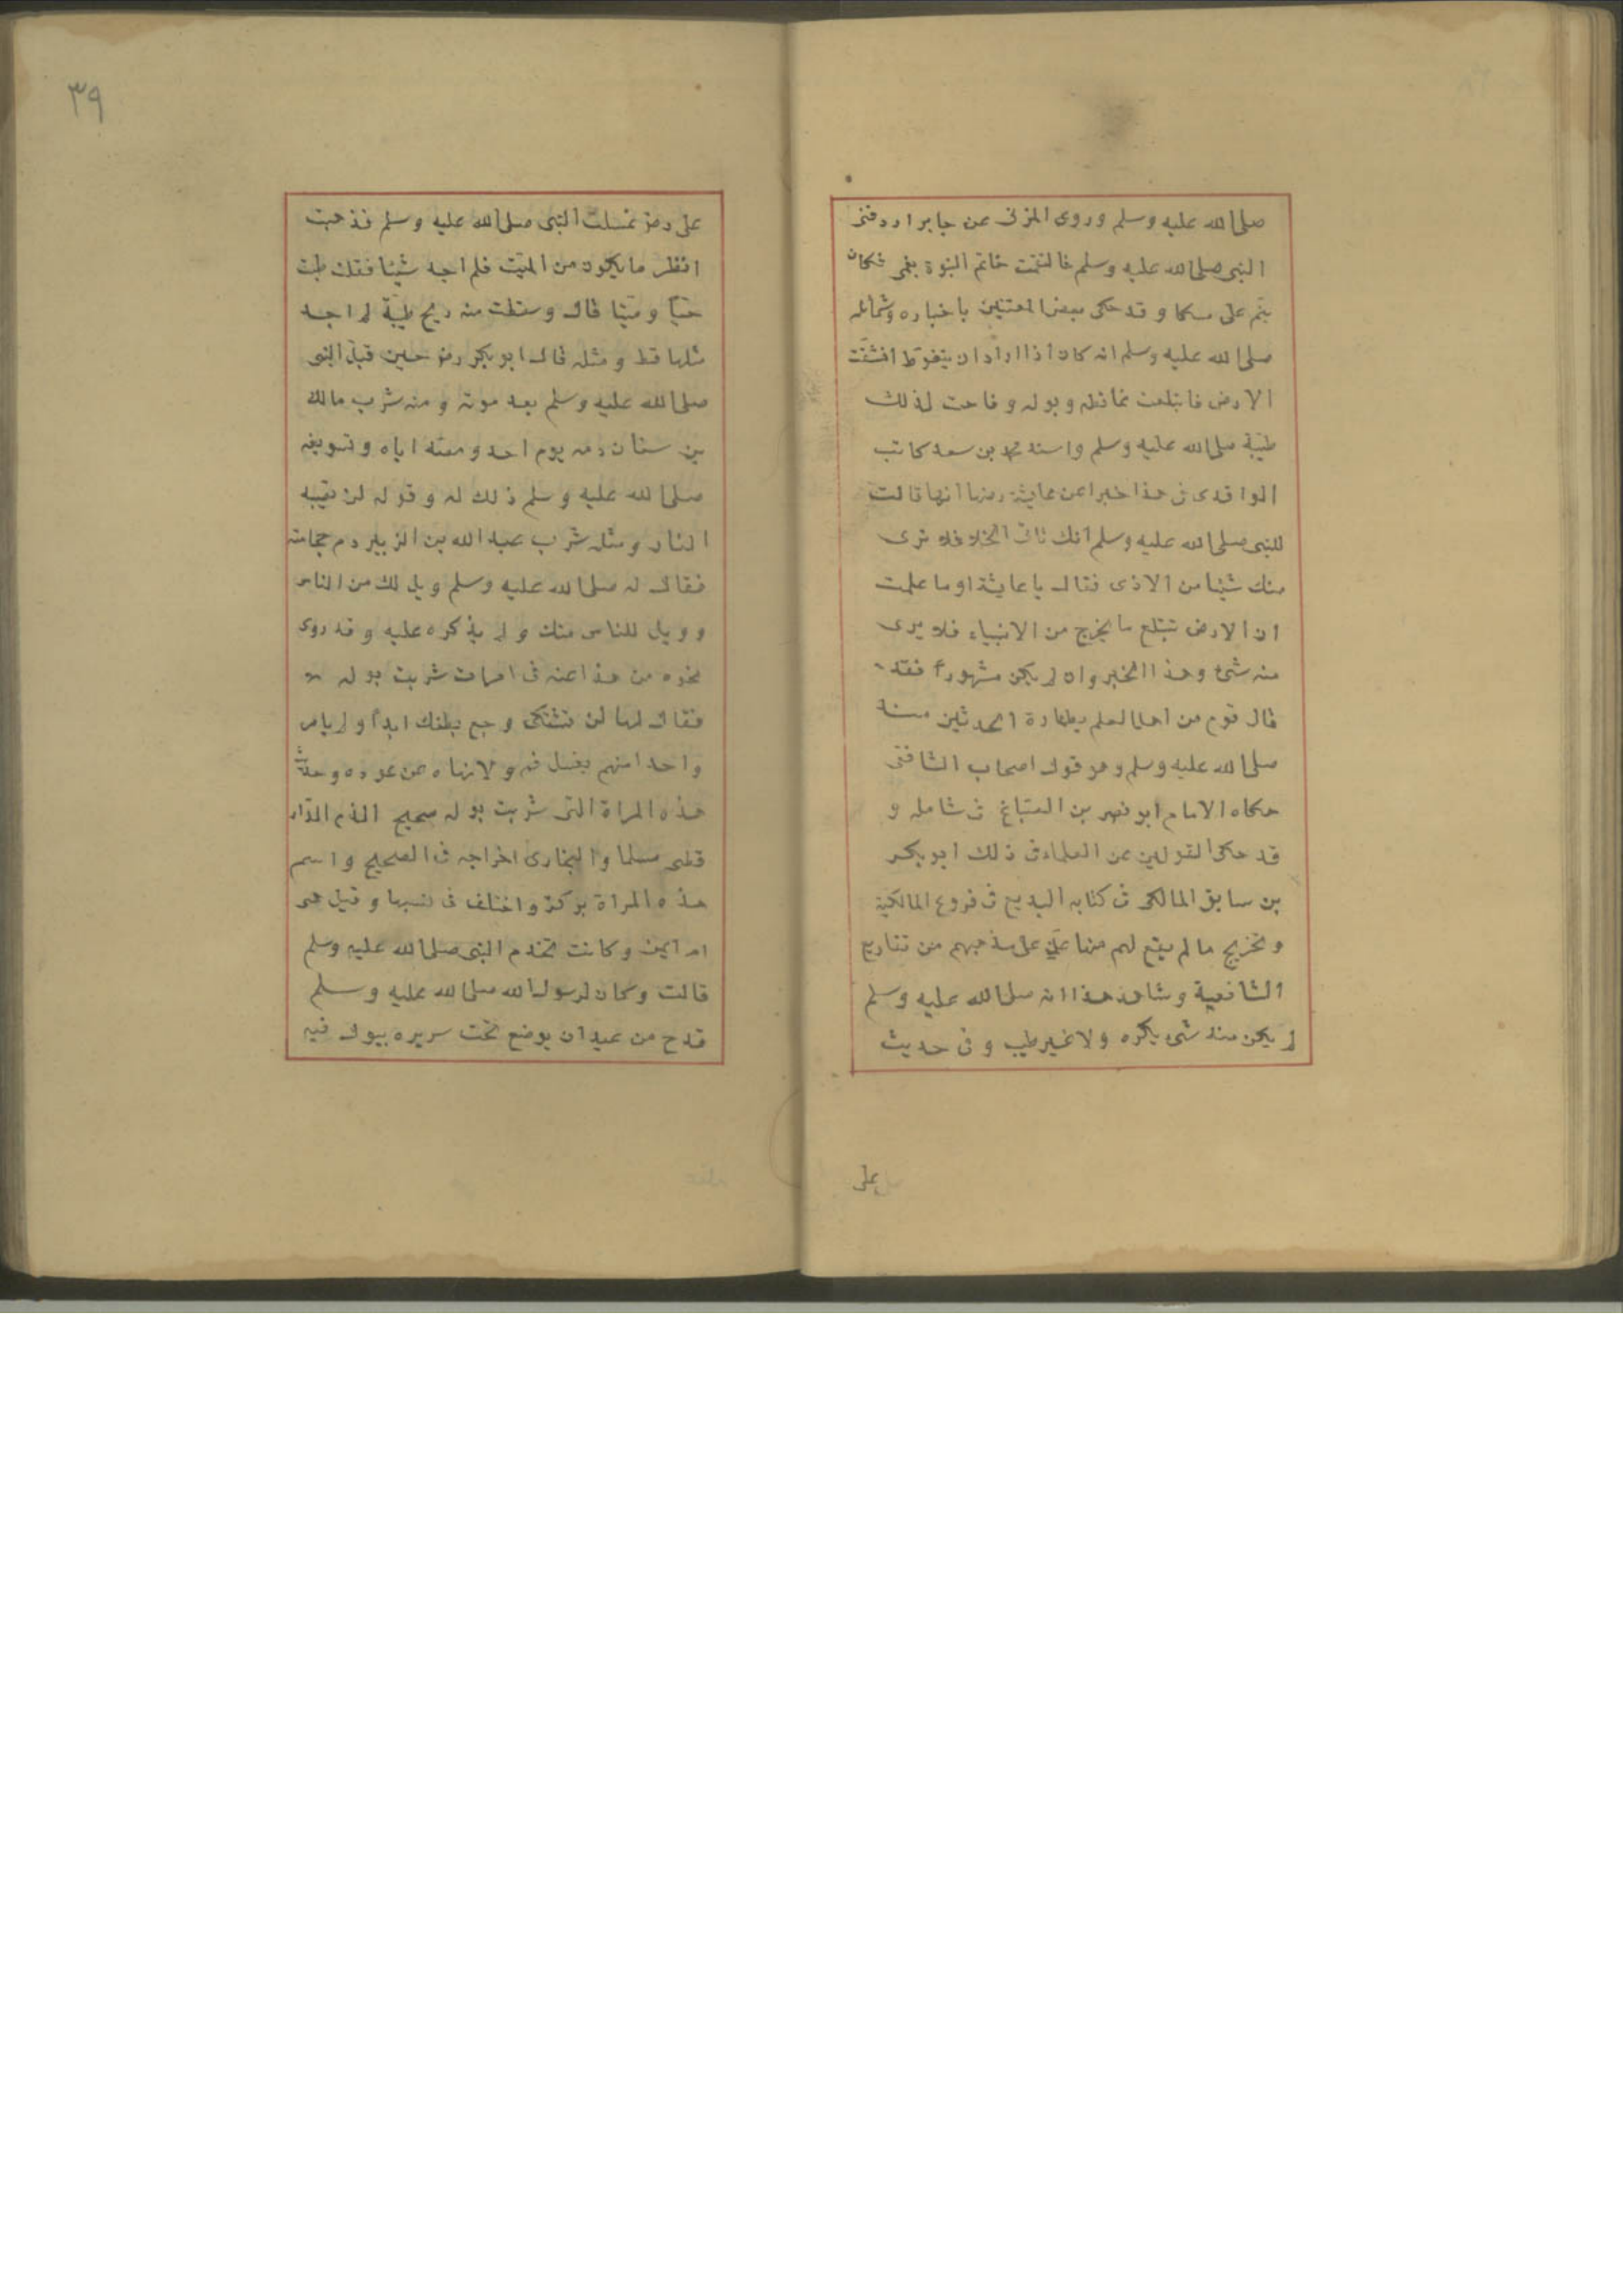 صلى الله عليه وسلم وروى المزنى عن جابر اردفنى
النبى صلى الله عليه وسلم فالتقمت خاتم النبوة بفمى فكان
ينم على مسكا وقد حكى بعض المعتنين باخباره وشمائله
صلى الله عليه وسلم انه كان اذا اراد ان يتغوط انشقت
الارض فابتلعت غائطه وبوله وفاحت لذلك
طيبة صلى الله عليه وسلم واسند محمد بن سعد كاتب
الواقدى فى هذا خبرا عن عايشة رضها انها قالت
للنبى صلى الله عليه وسلم انك تاتى الخلا فلا نرى
منك شيئا من الاذى فقال يا عايشة او ما علمت
ان الارض تبتلع ما يخرج من الانبياء فلا يرى
منه شئ وهذا الخبر وان لم يكن مشهورا فقد
قال قوم من اهل العلم بطهارة الحدثين منه
صلى الله عليه وسلم وهو قول اصحاب الشافعى
حكاه الامام ابو نصر بن الصباغ فى شامله و
قد حكى القولين عن العلماء فى ذلك ابو بكر
بن سابق المالكى فى كتابه البديع فى فروع المالكية
وتخريج ما لم يقع لهم منها على مذهبهم من تفاريع
الشافعية وشاهد هذا انه صلى الله عليه وسلم
لم يكن منه شئ يكره ولا غير طيب وفى حديث
على
٣٩
على رضه غسلت النبى صلى الله عليه وسلم فذهبت
انظر ما يكون من الميت فلم اجد شيئا فقلت طبت
حيا وميتا قال وسطعت منه ريح طيبة لم اجد
مثلها قط ومثله قال ابو بكر رضه حين قبل النبى
صلى الله عليه وسلم بعد موته ومنه شرب مالك
بن سنان دمه يوم احد ومصه اياه وتسويغه
صلى الله عليه وسلم ذلك له وقوله لن تصيبه
النار ومثله شرب عبد الله بن الزبير دم حجامته
فقال له صلى الله عليه وسلم ويل لك من الناس
وويل للناس منك ولم يذكره عليه وقد روى
نحوه من هذا عنه فى امرات شربت بوله
فقال لها لن تشتكى وجع بطنك ابدا ولم يامر
واحدا منهم بغسل فم ولا نهاه عن عوده وحديث
هذه المراة التى شربت بوله صحيح الزم الدار
قطنى مسلما والبخارى اخراجه فى الصحيح واسم
هذه المراة بركة واختلف فى نسبها وقيل هى
ام ايمن وكانت تخدم النبى صلى الله عليه وسلم
قالت وكان لرسول الله صلى الله عليه وسلم
قدح من عيدان يوضع تحت سريره يبول فيه